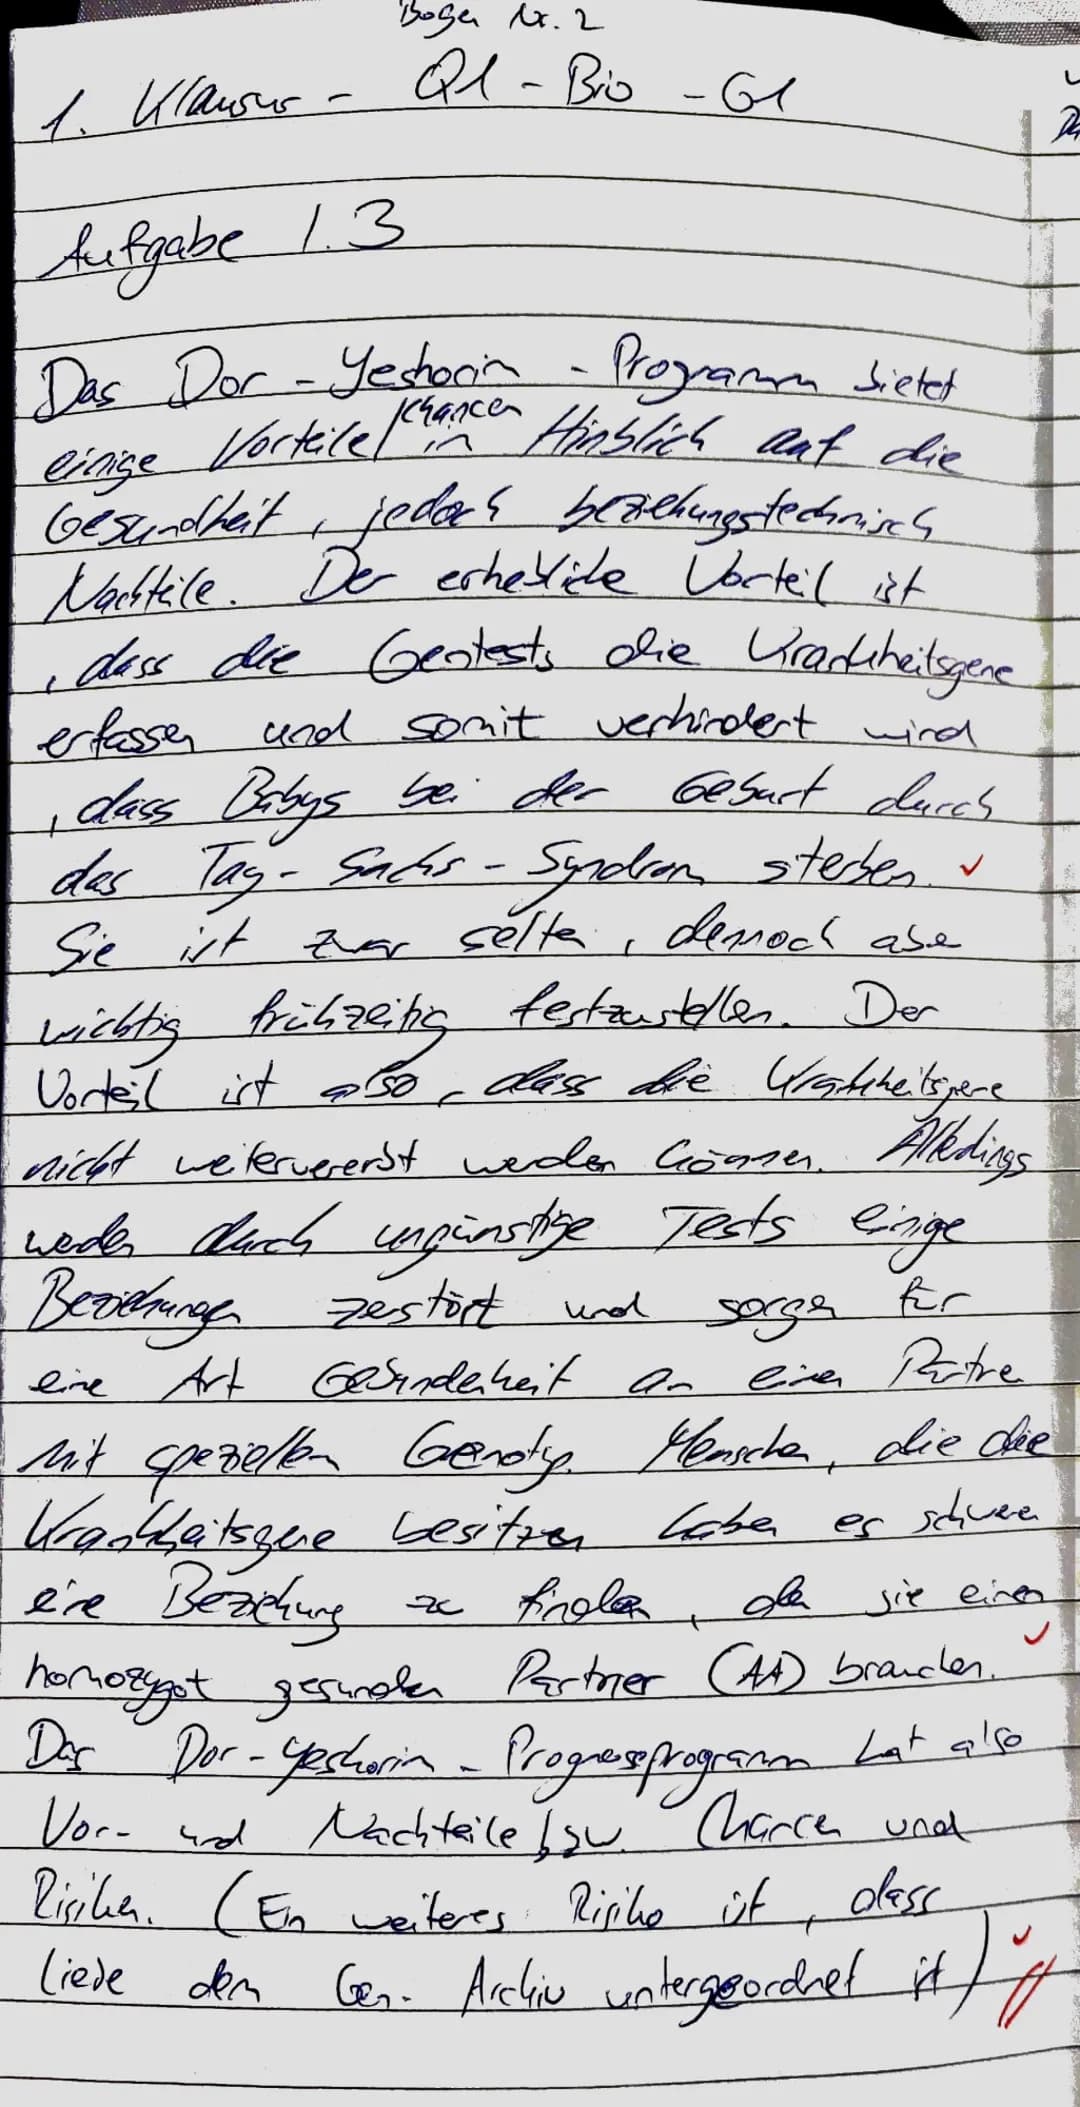 Bogen Nr. 2
1. Klausur - Q1 - Bio - G1
Aufgabe 1.3
Das Dor - Yeshorin - Programm bietet
einige Vorteile/Chancen in Hinblick auf die
Gesundheit, jedoch beziehungstechnisch
Nachteile. Der erhebliche Vorteil ist
, dass die Gentests die Krankheitsgene
erfassen und somit verhindert wird
, dass Babys bei der Geburt durch
das Tay - Sachs - Syndrom sterben.
Sie ist zwar selten, dennoch aber
wichtig frühzeitig festzustellen. Der
Vorteil ist also, dass die Krankheitsgene
nicht weitervererbt werden können. Allerdings
werden durch ungünstige Tests einige
Beziehungen zerstört und sorgen für
eine Art Gebundenheit an einen Partner
mit speziellem Genotyp. Menschen, die die
Krankheitsgene besitzen haben es schwer
eine Beziehung zu finden, da sie einen
homozygot gesunden Partner (AA) brauchen.
Das Dor - Yeshorin - Prognoseprogramm hat also
Vor- und Nachteile bzw. Chancen und
Risiken. (Ein weiteres Risiko ist, dass
Liebe dem Gen- Archiv untergeordnet ist)